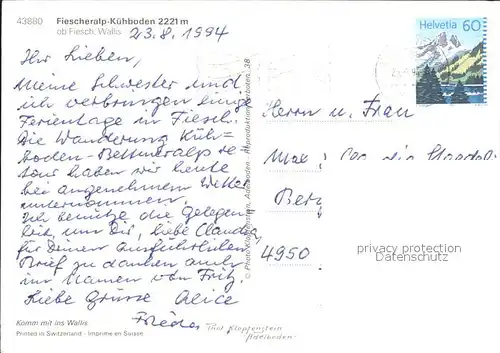 43880 Fiescheralp-Kühboden 2221 m
ob Fiesch, Wallis
23.8.1994
Ihr Lieben,
Meine Schwester und
ich verbringen einige
Ferientage in Fiesch.
Die Wanderung Küh=
boden-Bettmeralp re
tour haben wir heute
bei angenehmem Wetter
unternommen.
Ich benütze die Gelegen
heit, um Dir, liebe Claudia,
für Deinen ausführlichen
Brief zu danken auch
im Namen von Fritz.
Liebe Grüsse Alice
Komm mit ins Wallis
Printed in Switzerland - Imprimé en Suisse
© Photo Klopfenstein, Adelboden. Reproduktion verboten. 38
Helvetia 60
Herrn u. Frau
4950
privacy protection
Datenschutz
Phot Klopfenstein
Adelboden